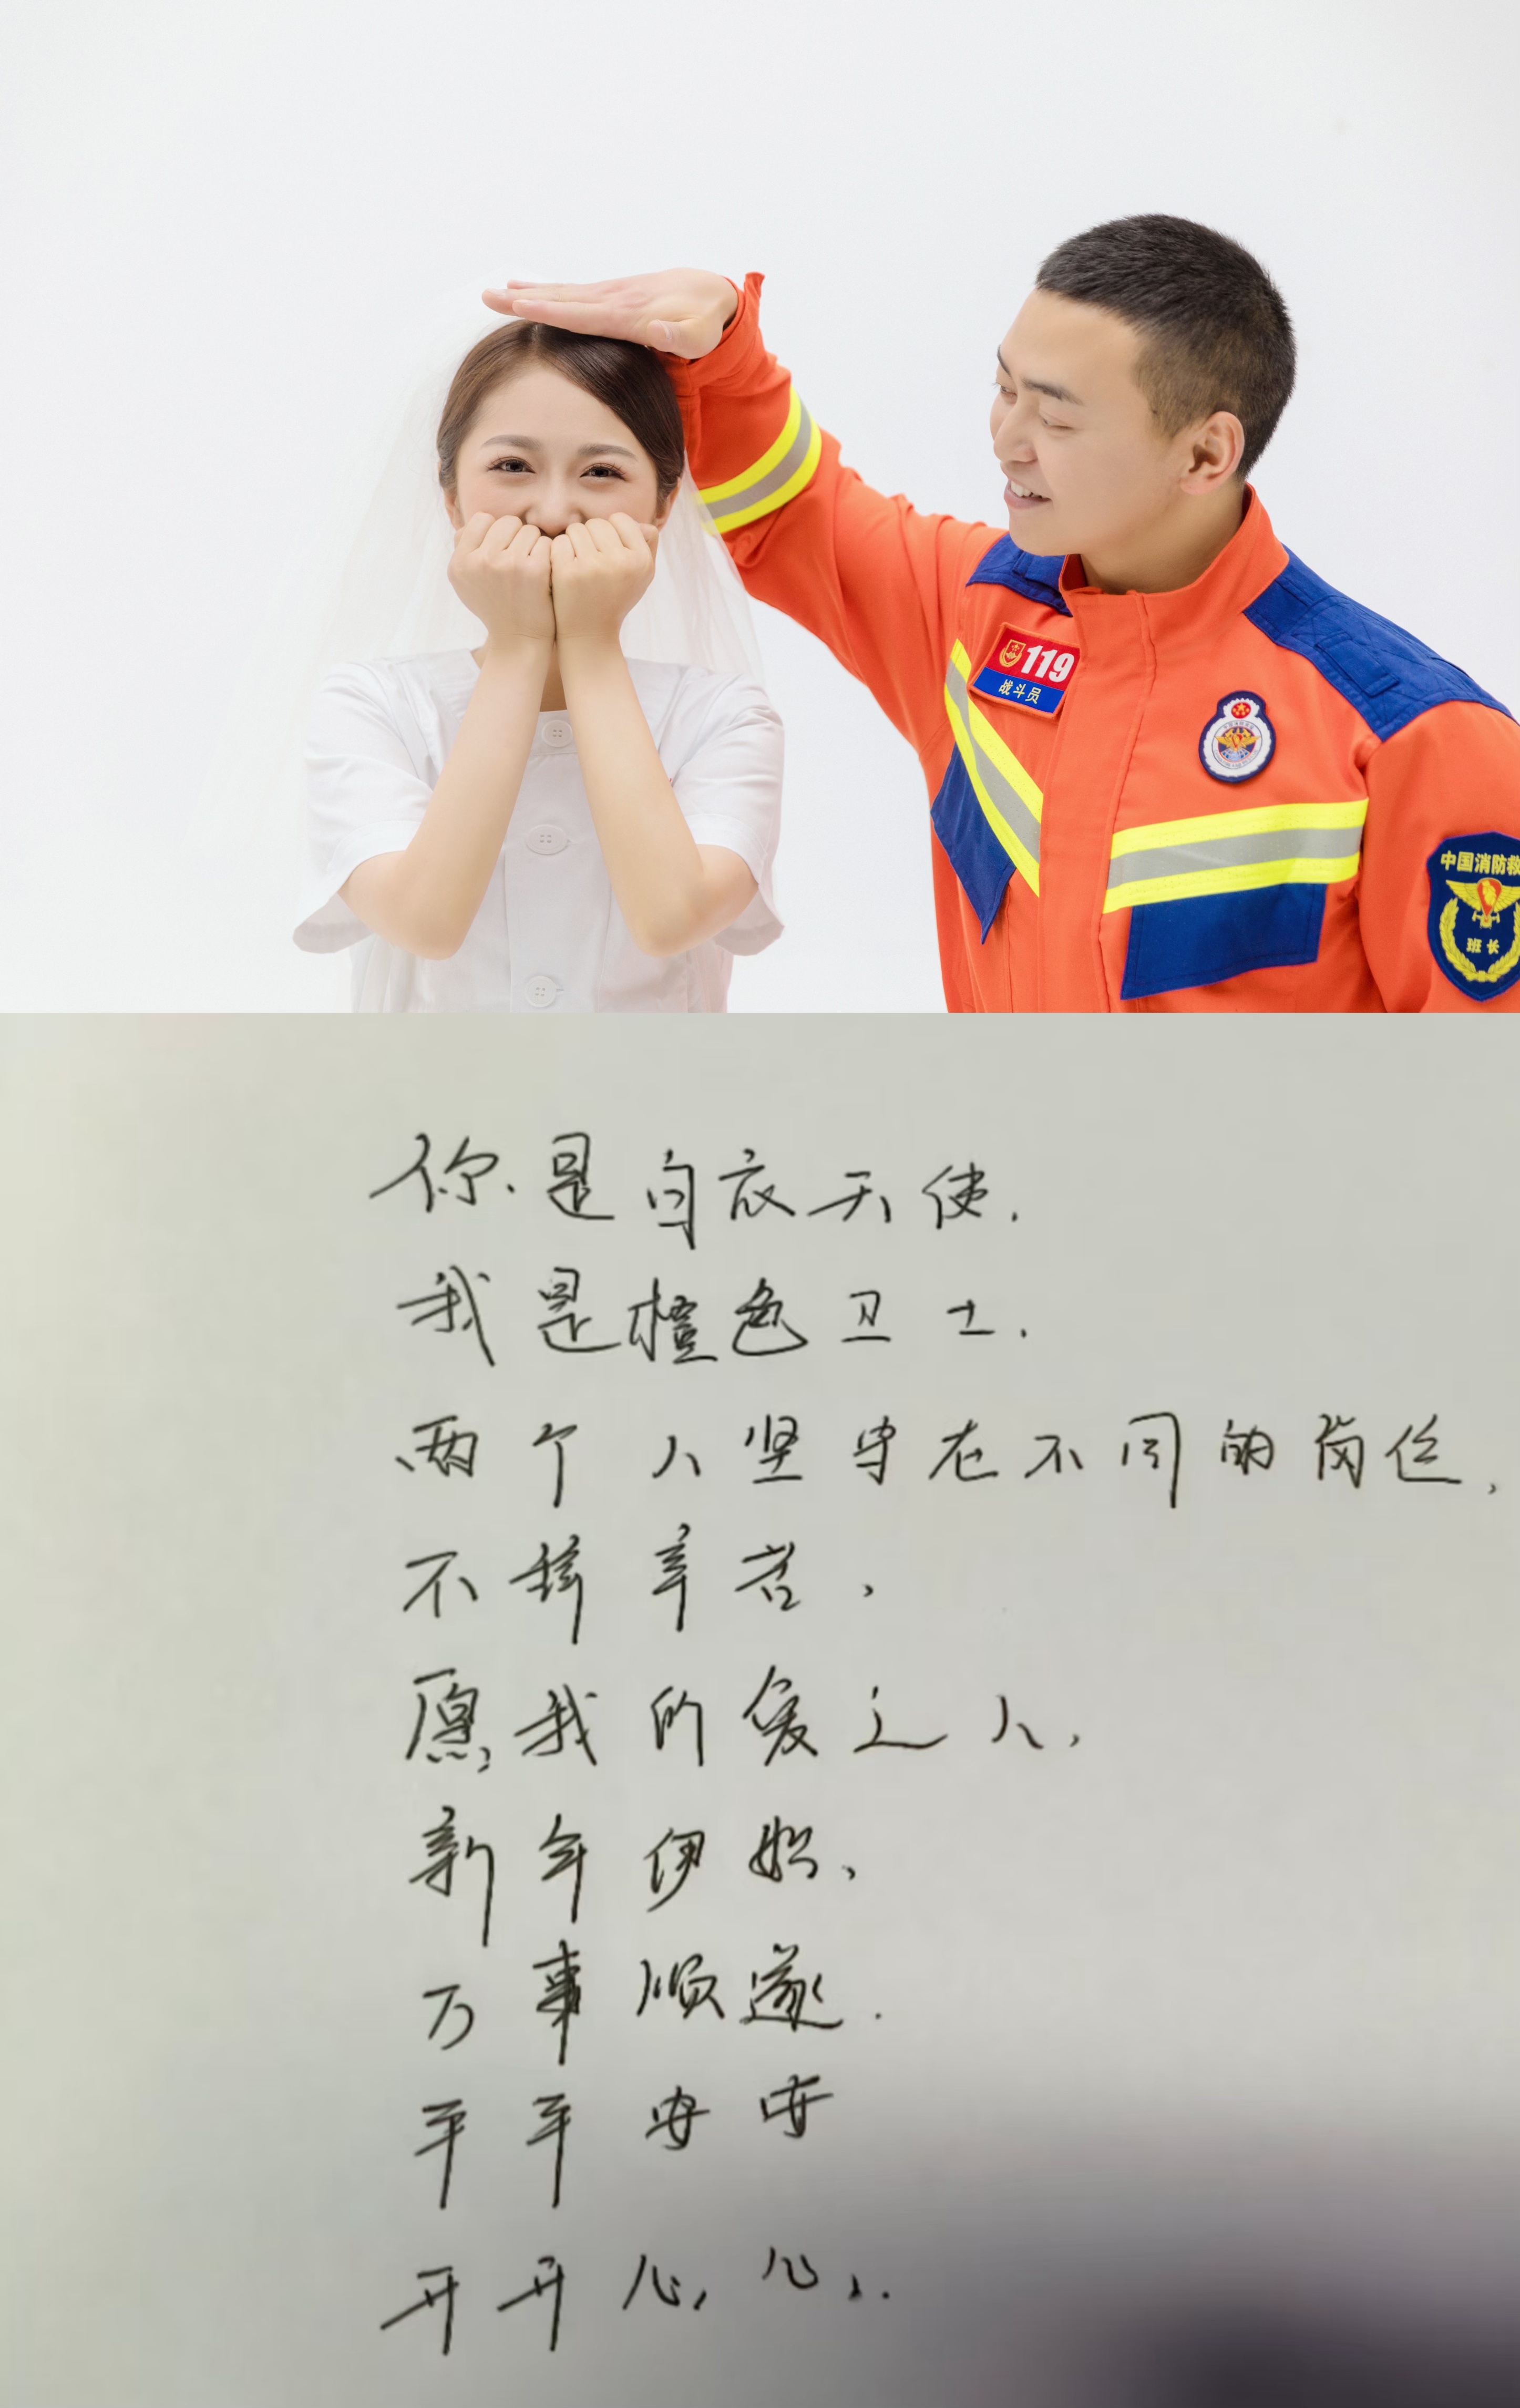 119
战斗员
中国消防救
班长
你是白衣天使.
我是橙色卫士.
两个人坚守在不同的岗位,
不辞辛苦,
愿我的爱之人,
新年伊始,
万事顺遂.
平平安安
开开心心.